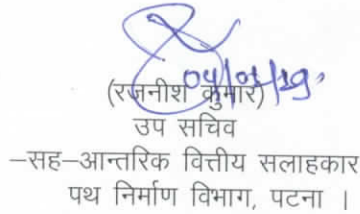 04/01/19
(रजनीश कुमार)
उप सचिव
–सह–आन्तरिक वित्तीय सलाहकार
पथ निर्माण विभाग, पटना ।